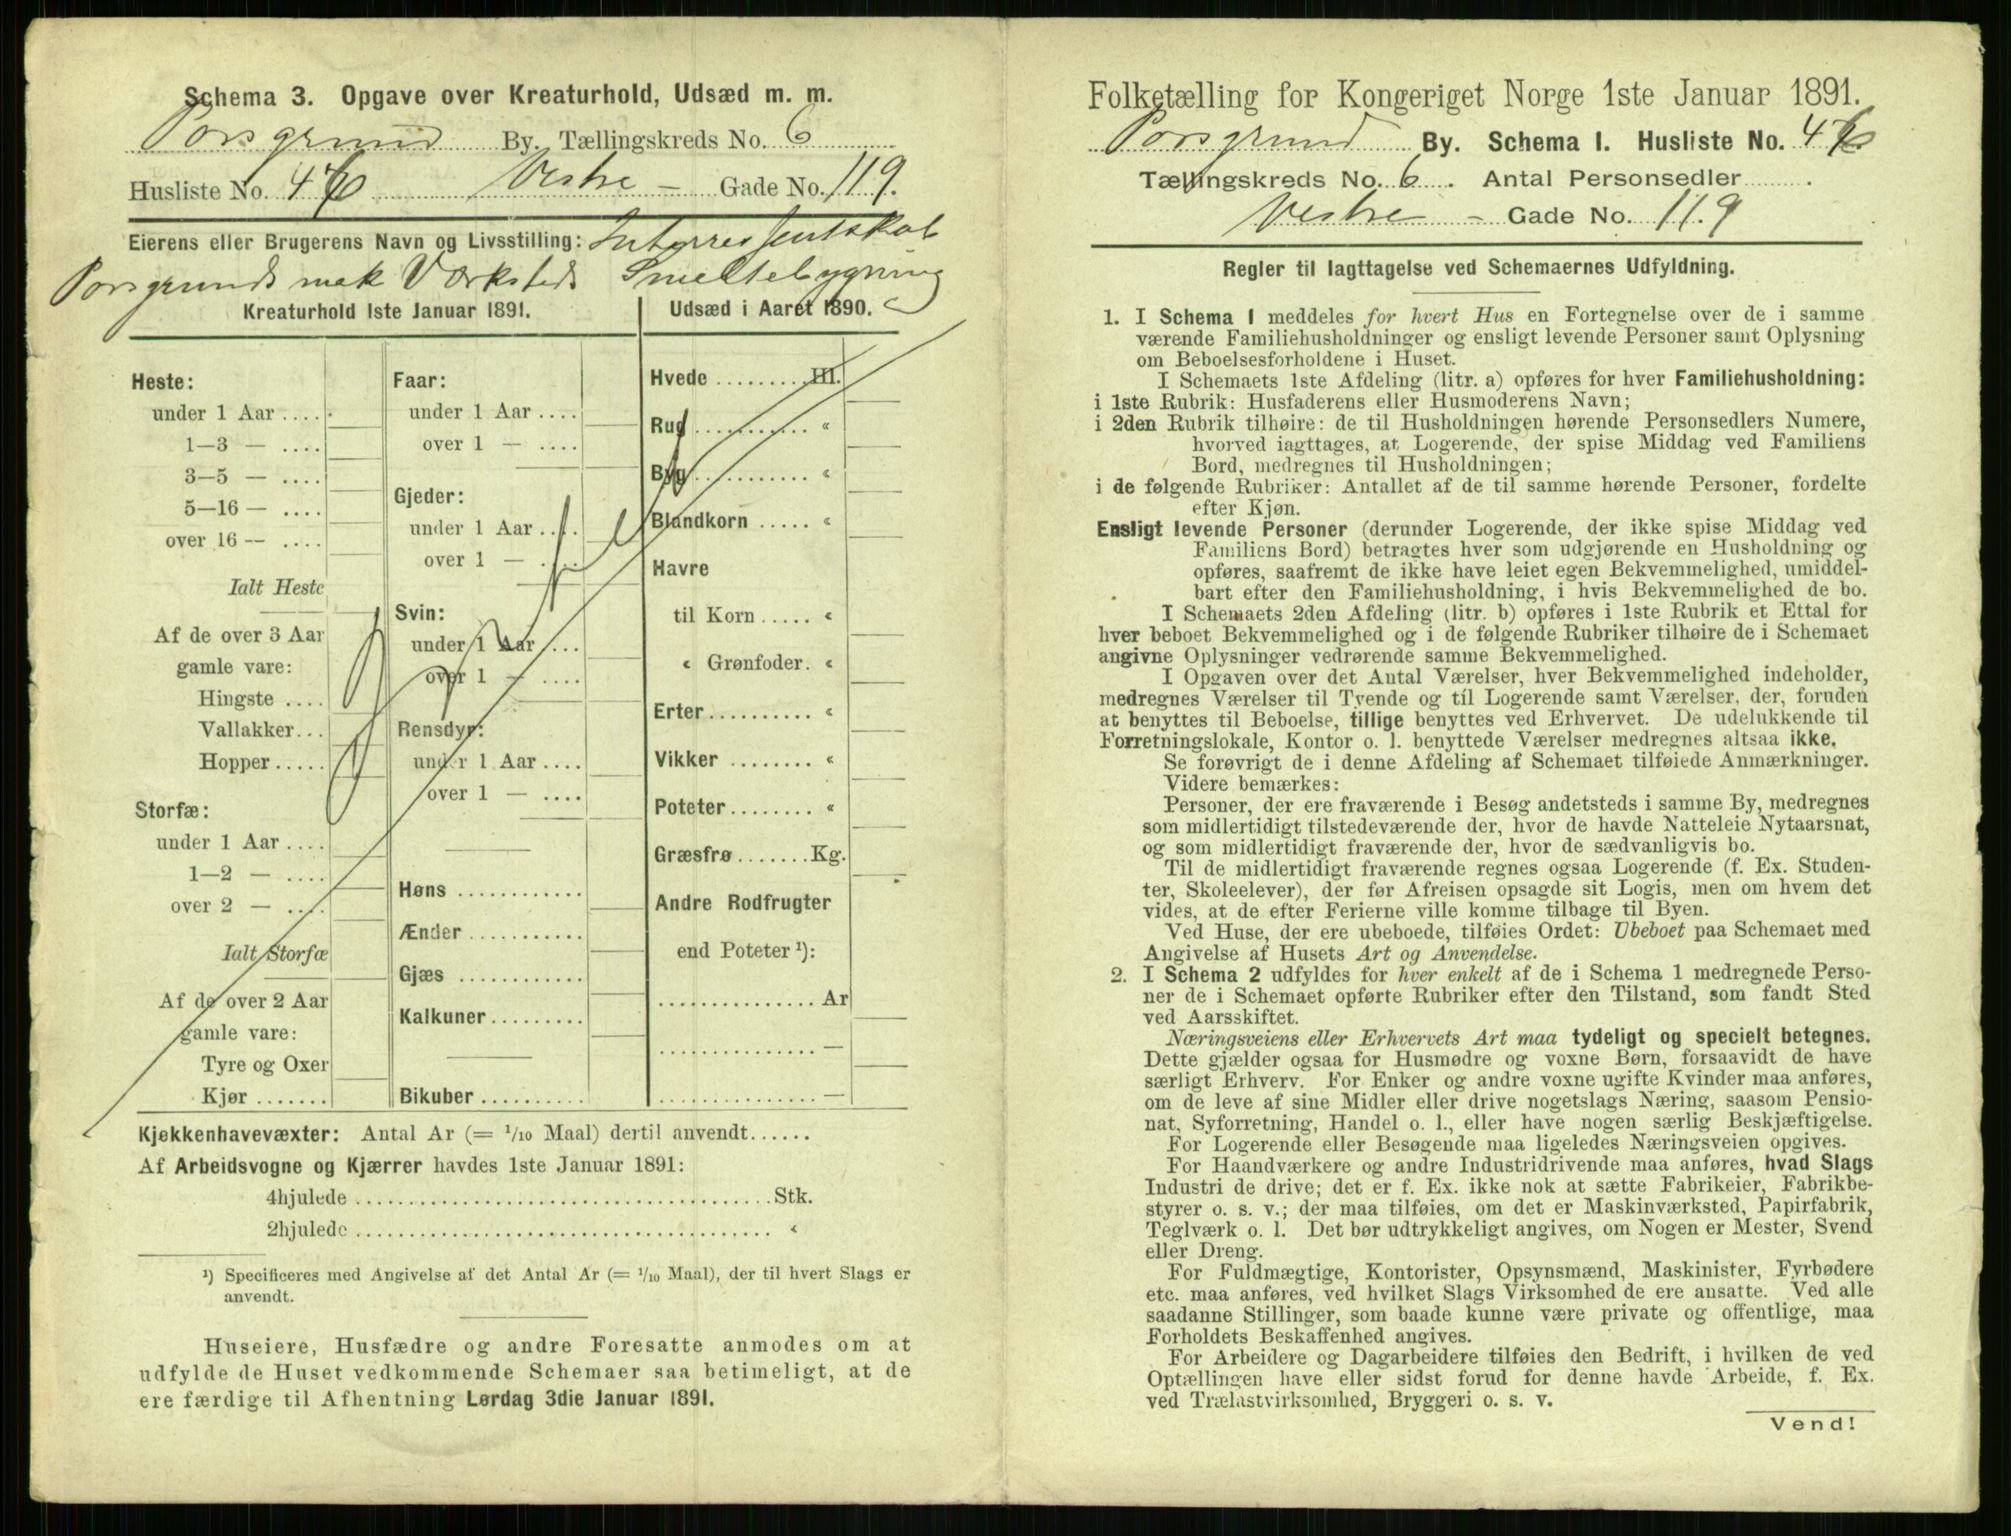 Schema 3. Opgave over Kreaturhold, Udsæd m. m.
Porsgrund By. Tællingskreds No. 6
Husliste No. 46 Vestre – Gade No. 119.
Eierens eller Brugerens Navn og Livsstilling: Interressentskab
Porsgrunds mek Værksteds Smeltebygning
Kreaturhold 1ste Januar 1891.
Heste:
under 1 Aar ....
1—3 — ....
3—5 — ....
5—16 — ....
over 16 — ....
Ialt Heste
Af de over 3 Aar
gamle vare:
Hingste ....
Vallakker...
Hopper .....
Storfæ:
under 1 Aar ....
1—2 — ....
over 2 — ....
Ialt Storfæ
Af de over 2 Aar
gamle vare:
Tyre og Oxer
Kjør .......
Faar:
under 1 Aar ....
over 1 — ....
Gjeder:
under 1 Aar ....
over 1 — ....
Svin:
under 1 Aar ....
over 1 — ....
Rensdyr:
under 1 Aar ....
over 1 — ....
Høns ............
Ænder ...........
Gjæs ............
Kalkuner.........
Bikuber ..........
Udsæd i Aaret 1890.
Hvede ......... Hl.
Rug ........... «
Byg ........... «
Blandkorn ..... «
Havre
til Korn ..... «
« Grønfoder. «
Erter.......... «
Vikker ........ «
Poteter........ «
Græsfrø.......Kg.
Andre Rodfrugter
end Poteter ¹):
............... Ar
............... —
............... —
Kjøkkenhavevæxter: Antal Ar (= 1/10 Maal) dertil anvendt......
Af Arbeidsvogne og Kjærrer havdes 1ste Januar 1891:
4hjulede ........................................ Stk.
2hjulede ........................................ «
¹) Specificeres med Angivelse af det Antal Ar (= 1/10 Maal), der til hvert Slags er
anvendt.
Huseiere, Husfædre og andre Foresatte anmodes om at
udfylde de Huset vedkommende Schemaer saa betimeligt, at de
ere færdige til Afhentning Lørdag 3die Januar 1891.
Folketælling for Kongeriget Norge 1ste Januar 1891.
Porsgrund By. Schema I. Husliste No. 46
Tællingskreds No. 6. Antal Personsedler .
Vestre – Gade No. 119
Regler til Iagttagelse ved Schemaernes Udfyldning.
1. I Schema I meddeles for hvert Hus en Fortegnelse over de i samme
værende Familiehusholdninger og ensligt levende Personer samt Oplysning
om Beboelsesforholdene i Huset.
I Schemaets 1ste Afdeling (litr. a) opføres for hver Familiehusholdning:
i 1ste Rubrik: Husfaderens eller Husmoderens Navn;
i 2den Rubrik tilhøire: de til Husholdningen hørende Personsedlers Numere,
hvorved iagttages, at Logerende, der spise Middag ved Familiens
Bord, medregnes til Husholdningen;
i de følgende Rubriker: Antallet af de til samme hørende Personer, fordelte
efter Kjøn.
Ensligt levende Personer (derunder Logerende, der ikke spise Middag ved
Familiens Bord) betragtes hver som udgjørende en Husholdning og
opføres, saafremt de ikke have leiet egen Bekvemmelighed, umiddel-
bart efter den Familiehusholdning, i hvis Bekvemmelighed de bo.
I Schemaets 2den Afdeling (litr. b) opføres i 1ste Rubrik et Ettal for
hver beboet Bekvemmelighed og i de følgende Rubriker tilhøire de i Schemaet
angivne Oplysninger vedrørende samme Bekvemmelighed.
I Opgaven over det Antal Værelser, hver Bekvemmelighed indeholder,
medregnes Værelser til Tyende og til Logerende samt Værelser, der, foruden
at benyttes til Beboelse, tillige benyttes ved Erhvervet. De udelukkende til
Forretningslokale, Kontor o. l. benyttede Værelser medregnes altsaa ikke.
Se forøvrigt de i denne Afdeling af Schemaet tilføiede Anmærkninger.
Videre bemærkes:
Personer, der ere fraværende i Besøg andetsteds i samme By, medregnes
som midlertidigt tilstedeværende der, hvor de havde Natteleie Nytaarsnat,
og som midlertidigt fraværende der, hvor de sædvanligvis bo.
Til de midlertidigt fraværende regnes ogsaa Logerende (f. Ex. Studen-
ter, Skoleelever), der før Afreisen opsagde sit Logis, men om hvem det
vides, at de efter Ferierne ville komme tilbage til Byen.
Ved Huse, der ere ubeboede, tilføies Ordet: Ubeboet paa Schemaet med
Angivelse af Husets Art og Anvendelse.
2. I Schema 2 udfyldes for hver enkelt af de i Schema 1 medregnede Perso-
ner de i Schemaet opførte Rubriker efter den Tilstand, som fandt Sted
ved Aarsskiftet.
Næringsveiens eller Erhvervets Art maa tydeligt og specielt betegnes.
Dette gjælder ogsaa for Husmødre og voxne Børn, forsaavidt de have
særligt Erhverv. For Enker og andre voxne ugifte Kvinder maa anføres,
om de leve af sine Midler eller drive nogetslags Næring, saasom Pensio-
nat, Syforretning, Handel o. l., eller have nogen særlig Beskjæftigelse.
For Logerende eller Besøgende maa ligeledes Næringsveien opgives.
For Haandværkere og andre Industridrivende maa anføres, hvad Slags
Industri de drive; det er f. Ex. ikke nok at sætte Fabrikeier, Fabrikbe-
styrer o. s. v.; der maa tilføies, om det er Maskinværksted, Papirfabrik,
Teglværk o. l. Det bør udtrykkeligt angives, om Nogen er Mester, Svend
eller Dreng.
For Fuldmægtige, Kontorister, Opsynsmænd, Maskinister, Fyrbødere
etc. maa anføres, ved hvilket Slags Virksomhed de ere ansatte. Ved alle
saadanne Stillinger, som baade kunne være private og offentlige, maa
Forholdets Beskaffenhed angives.
For Arbeidere og Dagarbeidere tilføies den Bedrift, i hvilken de ved
Optællingen have eller sidst forud for denne havde Arbeide, f. Ex.
ved Trælastvirksomhed, Bryggeri o. s. v.
Vend!